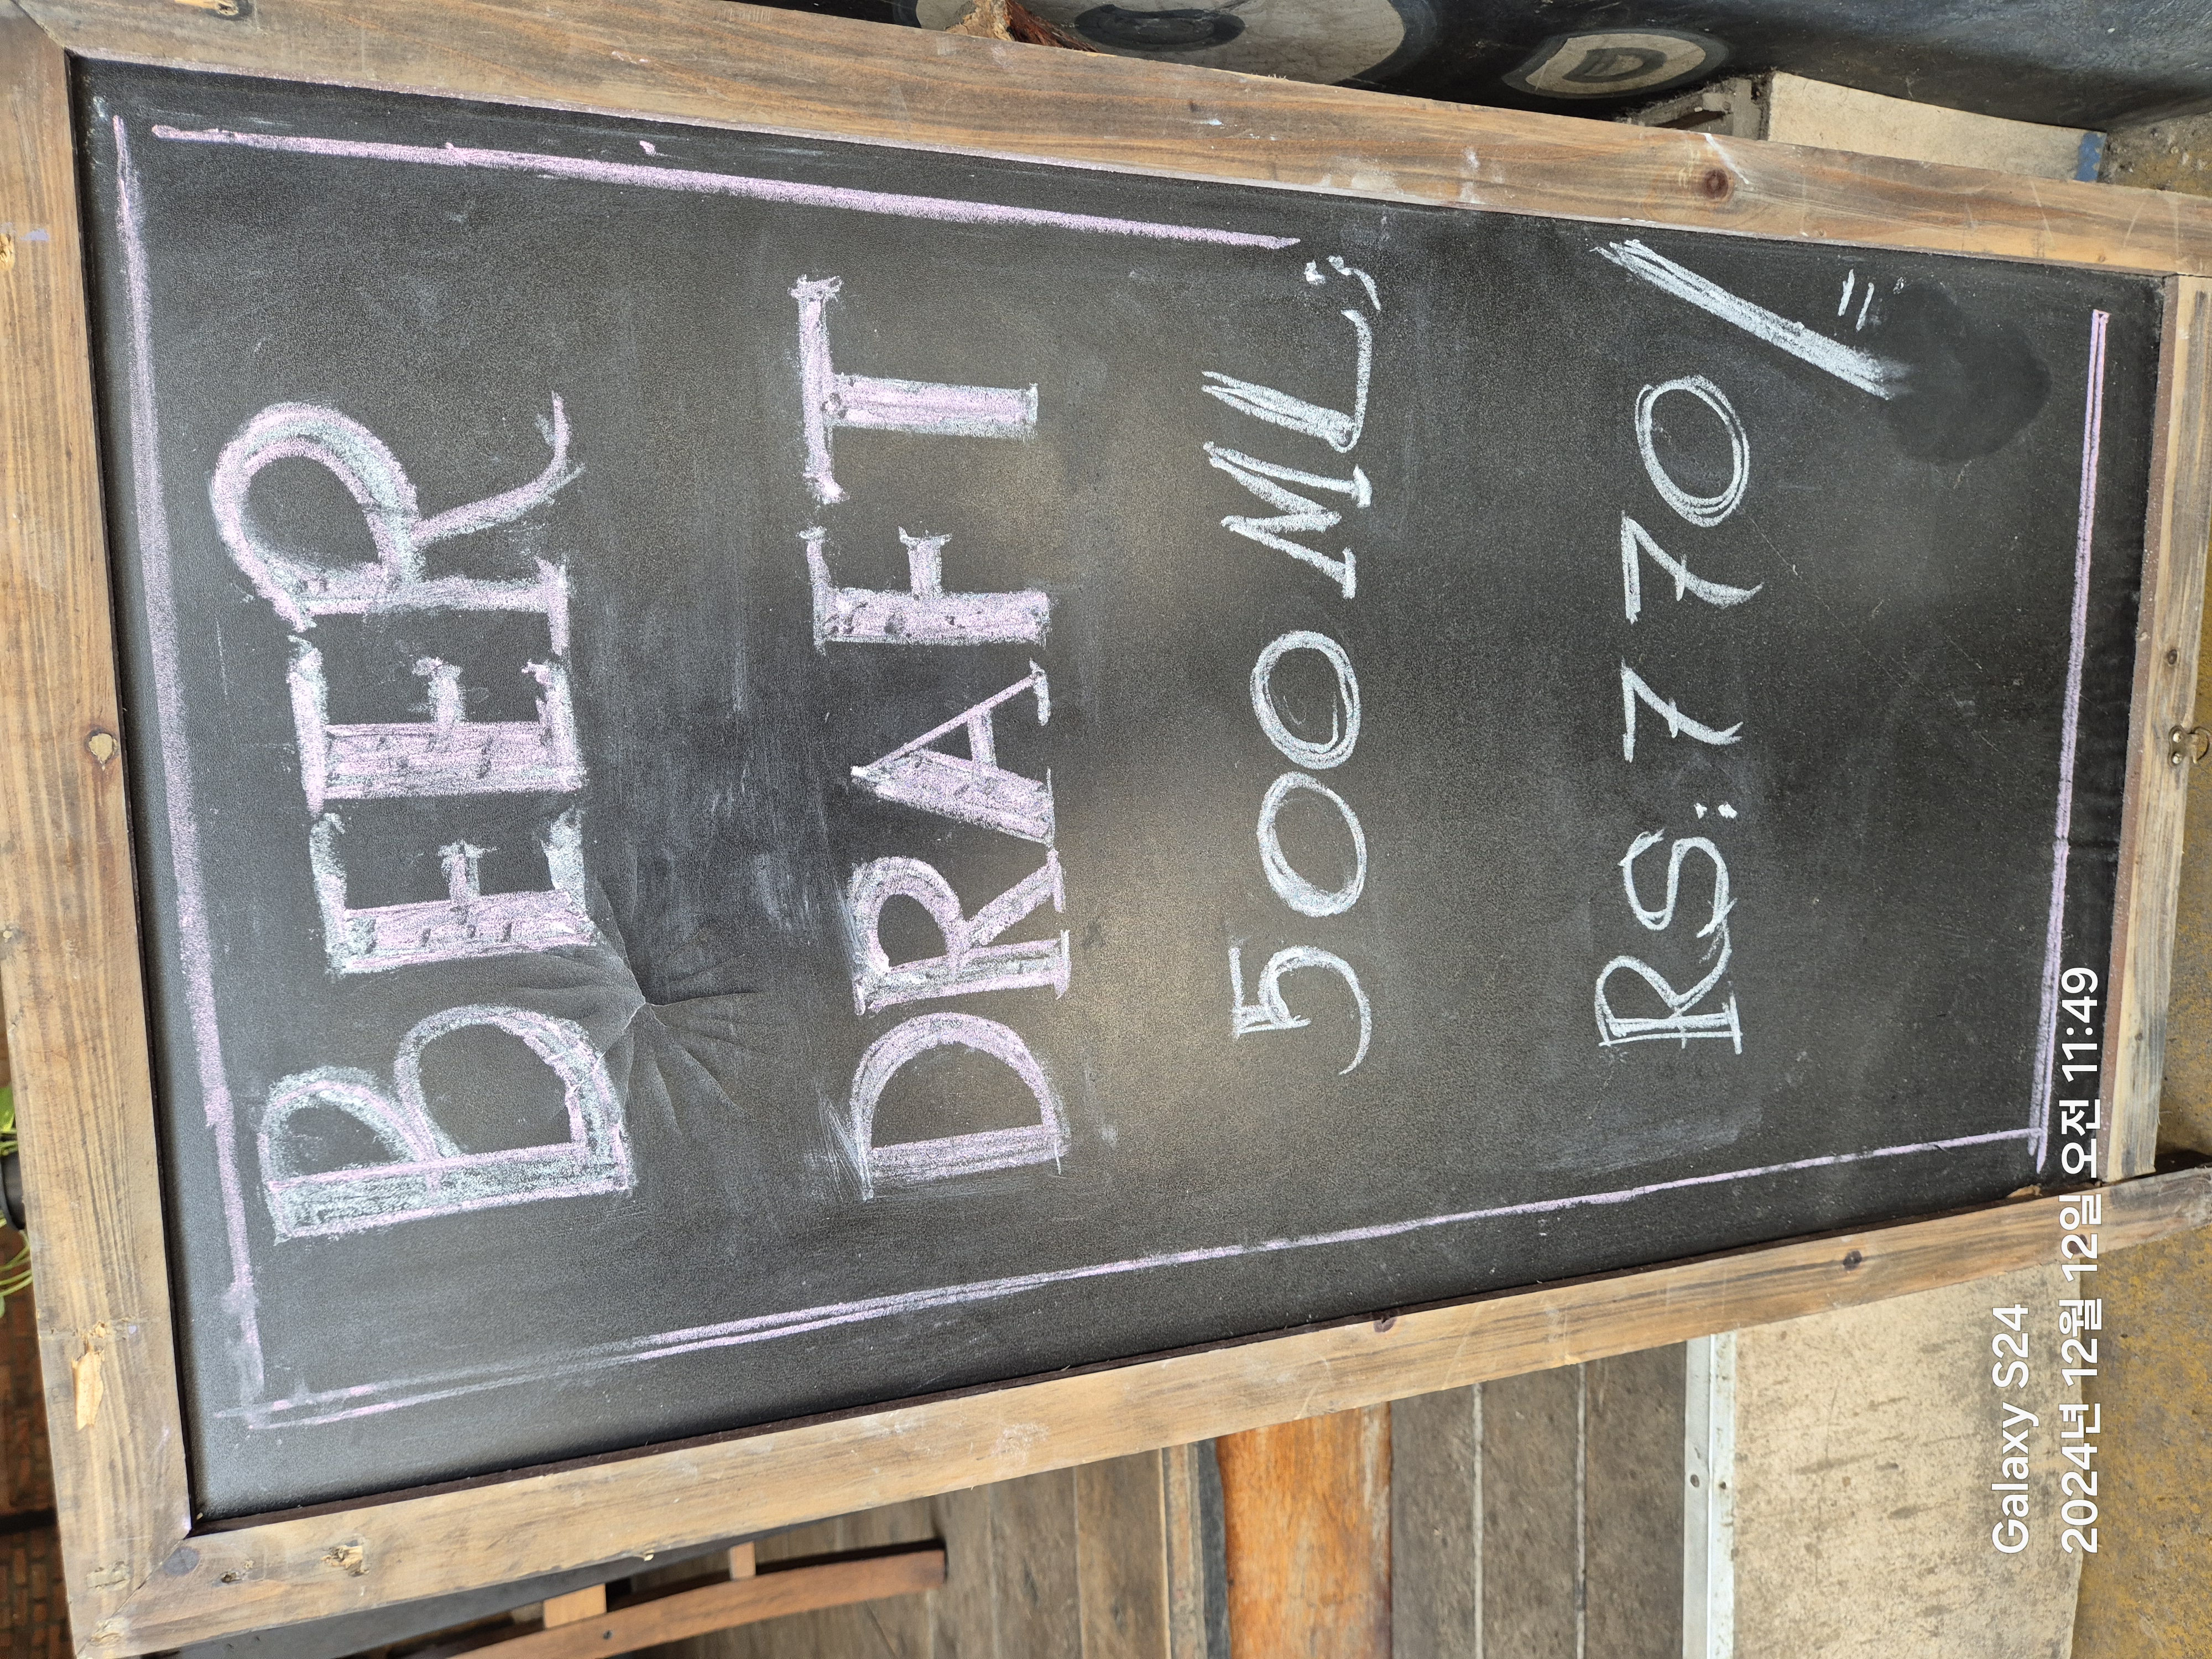 BEER
DRAFT
500 ML;
RS:770/=
Galaxy S24
2024년 12월 12일 오전 11:49